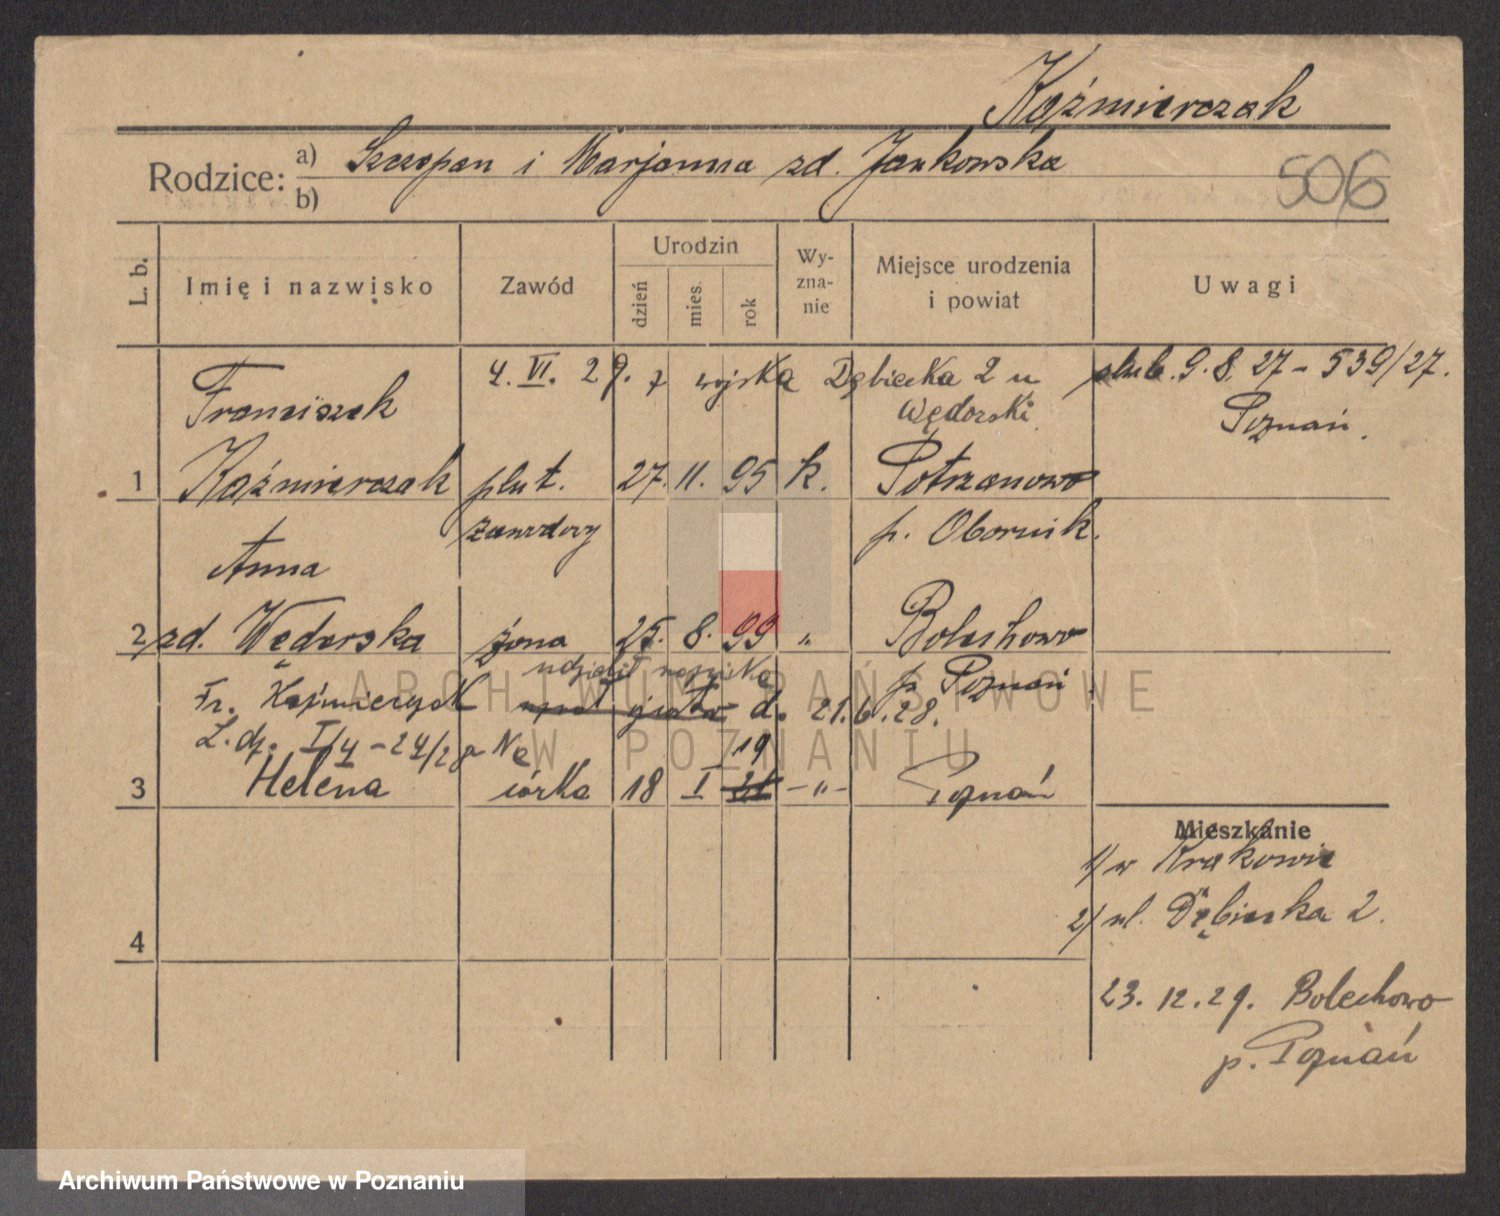 Kaźmierczak
Rodzice: a) Szczepan i Marjanna zd. Jankowska
b)
506
L. b.
Imię i nazwisko
Zawód
Urodzin
dzień
mies.
rok
Wy-
zna-
nie
Miejsce urodzenia
i powiat
Uwagi
4. VI. 29. z wojska Dębiecka 2 u
Wędorski
ślub. 9. 8. 27 - 539/27.
Poznań.
Franciszek
1 Kaźmierczak plut. 27. 11. 95 k. Potrzanowo
zawodowy p. Obornik.
Anna
2 zd. Wędorska żona 25. 8. 99 " Bolechowo
p. Poznań
udzielił nazwiska
Fr. Kaźmierczak d. 21.6.28.
L. dz. I/4 - 24/2
19
3 Helena córka 18 I 21 - " - Poznań
4
Mieszkanie
1) w Krakowie
2) ul. Dębiecka 2.
23. 12. 29. Bolechowo
p. Poznań
ARCHIWUM PAŃSTWOWE
W POZNANIU
Archiwum Państwowe w Poznaniu